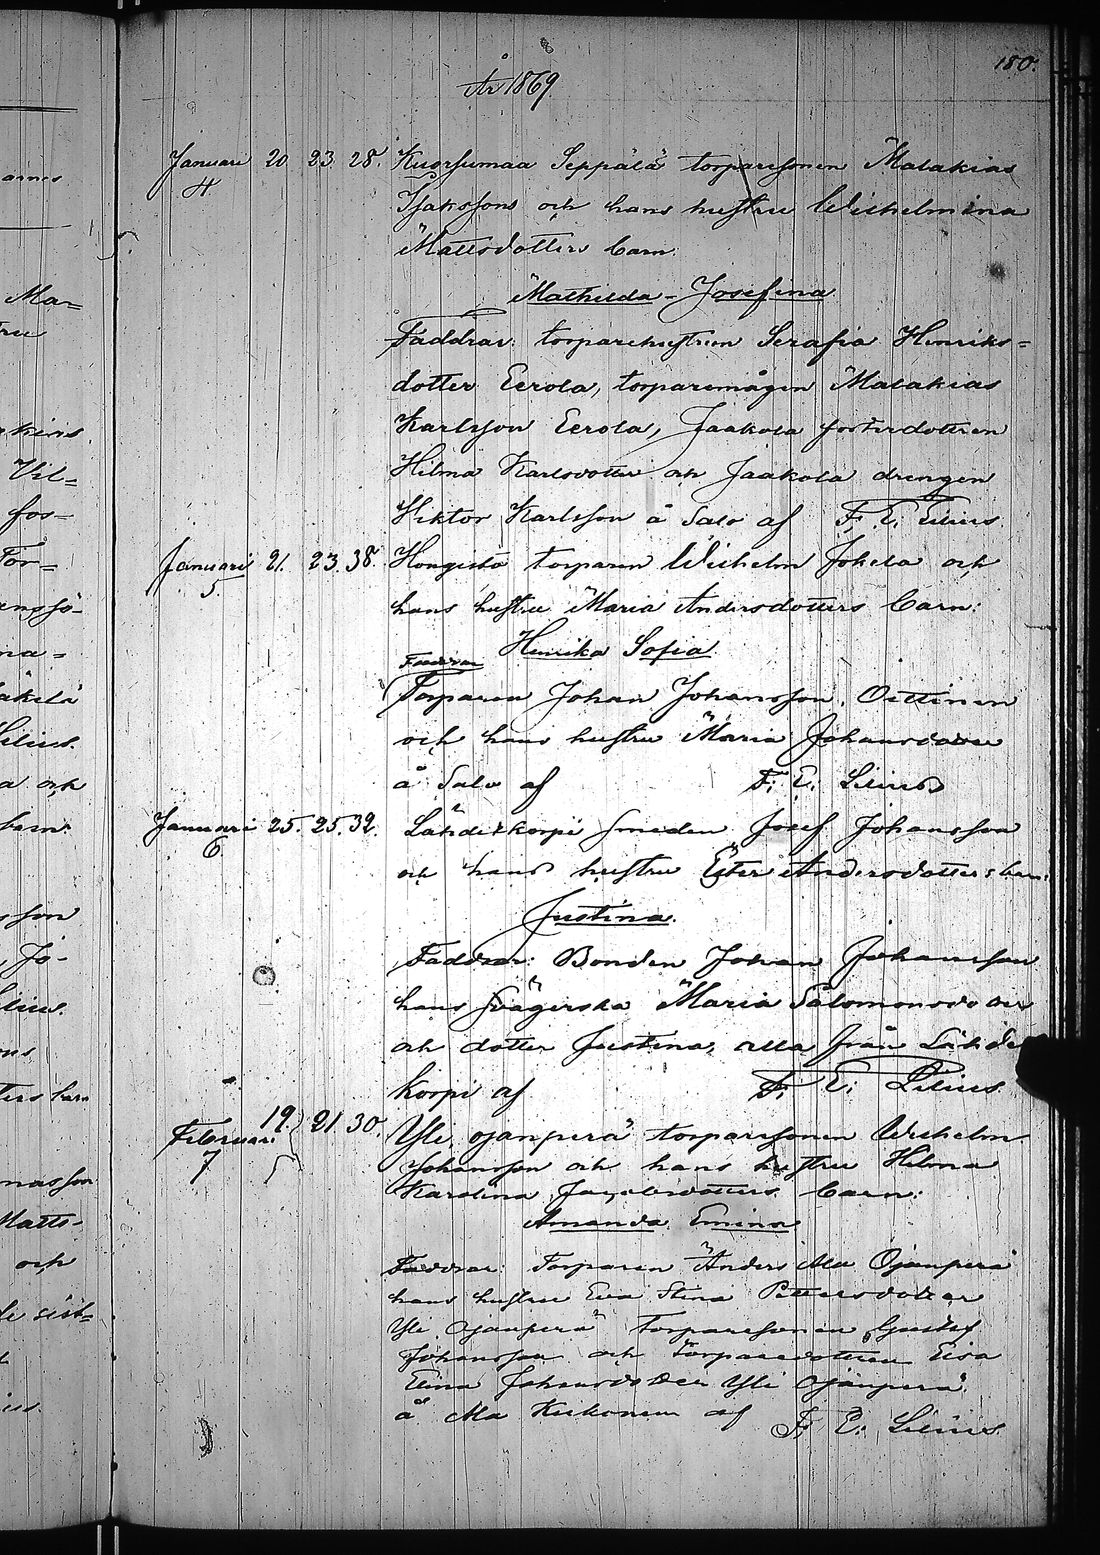 180.
År 1869.
Januari 20 23. 28. Kuorsumaa Seppälä torparesonen Malakias
4 Isakssons och hans hustru Wilhelmina
Mattsdotters barn
Mathilda - Josefina
Faddrar: torparehustrun Serafia Henriks=
dotter Eerola, torparemågen Malakias
Karlsson Eerola, Jaakola fosterdottren
Hilma Karlsdotter och Jaakola drengen
Hiktor Karlsson å Salo af F. E. Lilius
Januari 21. 23. 38. Hongisto torparen Wilhelm Jokela och
5. hans hustru Maria Andersdotters barn:
Henrika Sofia.
Faddrar
Torparen Johan Johansson Oittinen
och hans hustru Maria Johansdotter
å Salo af F. E. Lilius
Januari 25. 25. 32. Lähdekorpi smeden Josef Johansson
6. och hans hustru Ester Andersdotters barn:
Justina.
Faddrar: Bonden Johan Johansson
hans svägerska Maria Salomonsdotter
och dotter Justina, alla från Lähde
korpi af F. E. Lilius
Februari 19. 21 30. Yli ojanperä torparesonen Wilhelm
7 Johansson och hans hustru Hilma
Karolina Jacobsdotters barn:
Amanda Emina
Faddrar: Torparen Anders Ala Ojanperä
hans hustru Eva Stina Pettersdotter
Yli Ojanperä Torparesonen Gustaf
Johansson och Torparedottren Eva
Elina Johansdotter Yli Ojanperä
å Ala Kukonen af F. E. Lilius
arnes
Ma=
tru
kins
Vil=
fos=
Tor=
anssö=
ma=
äkelä
Lilius.
a och
barn:
sson
Jo=
Lilius.
ons
ters barn
nasson
Matts=
och